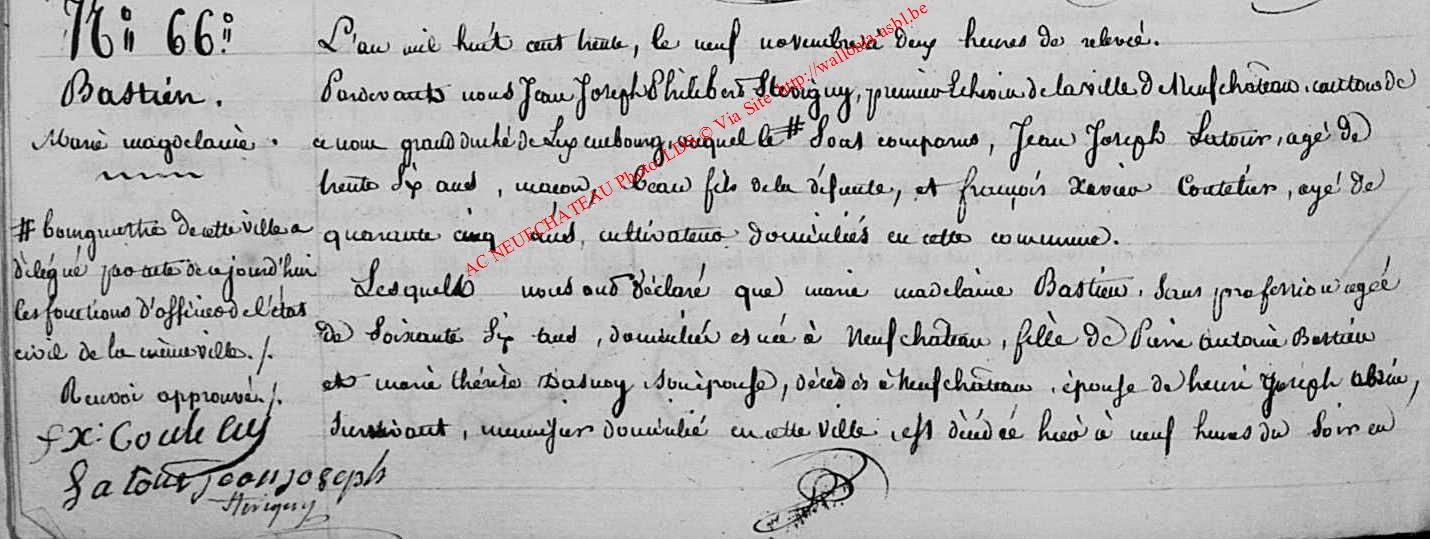 N.o 66.
Bastien.
Marie magdelaine.
L'an mil huit cent trente, le neuf novembre à deux heures de relevée.
Pardevant nous Jean Joseph Philibert Stévigny, premier Echevin de la ville de Neufchâteau, canton de
ce nom grand duché de Luxembourg, auquel le # Sont comparus, Jean Joseph Latour, agé de
trente six ans, maçon, beau fils de la défunte, et françois Xavier Coutelier, agé de
quarante cinq ans, cultivateur domiciliés en cette commune.
Lesquels nous ont déclaré que marie madelaine Bastien, sans profession agée
de soixante six ans, domiciliée et née à Neufchâteau, fille de Pierre antoine Bastien
et marie thérèse Dasnoy son épouse, décédés à Neufchâteau, épouse de henri Joseph
survivant, menuisier domicilié en cette ville, est décédée hier à neuf heures du soir en
# bourgmestre de cette ville a
délégué par acte de ce jourd'hui
les fonctions d'officier de l'état
civil de la même ville./.
Renvoi approuvé./.
fx: Couteliez
Latour jean joseph
Stévigny
AC NEUFCHATEAU Photo LDS © Via Site http://wallonia-asbl.be